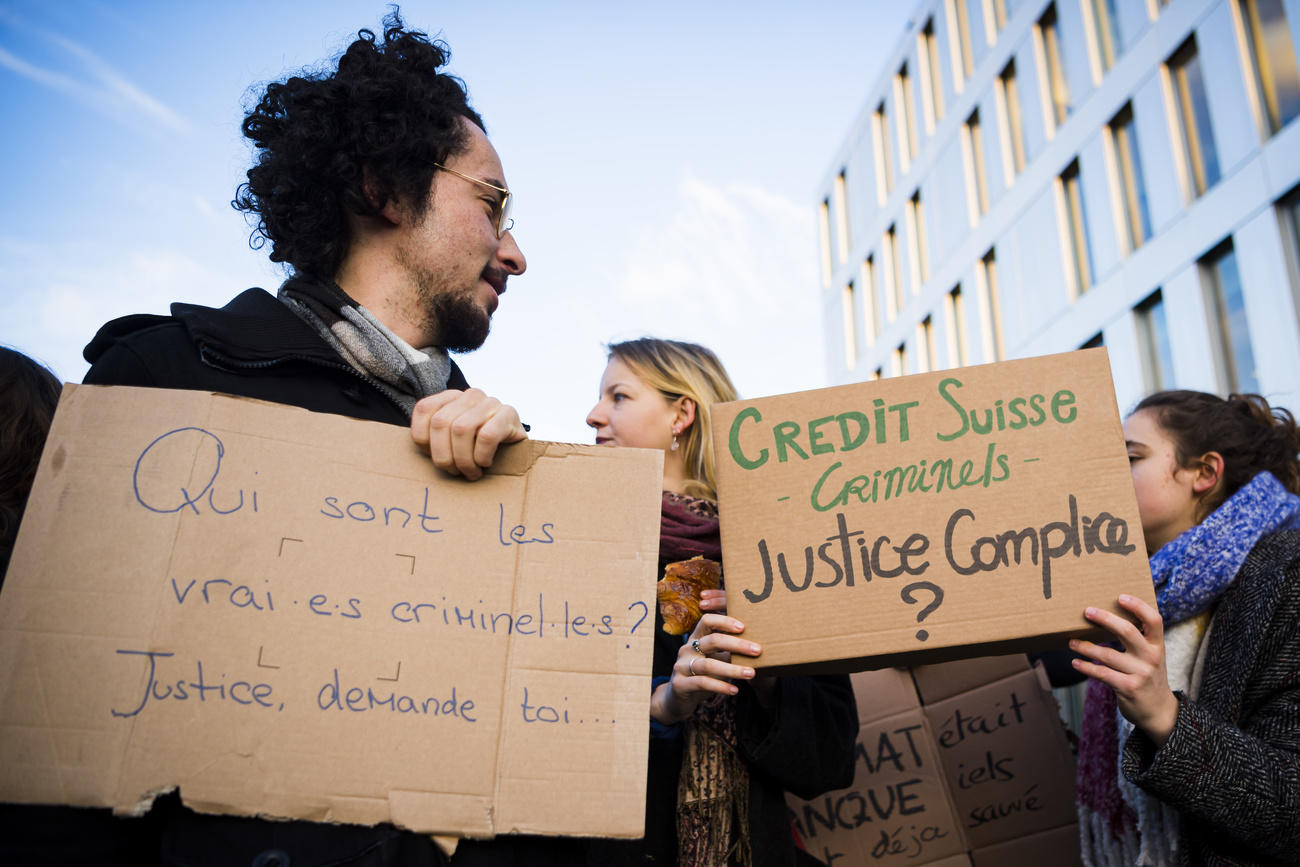 Qui sont les
vrai·e·s criminel·le·s?
Justice, demande toi...
CREDIT Suisse
- Criminels -
Justice Complice
?
était
iels
déjà sauvé